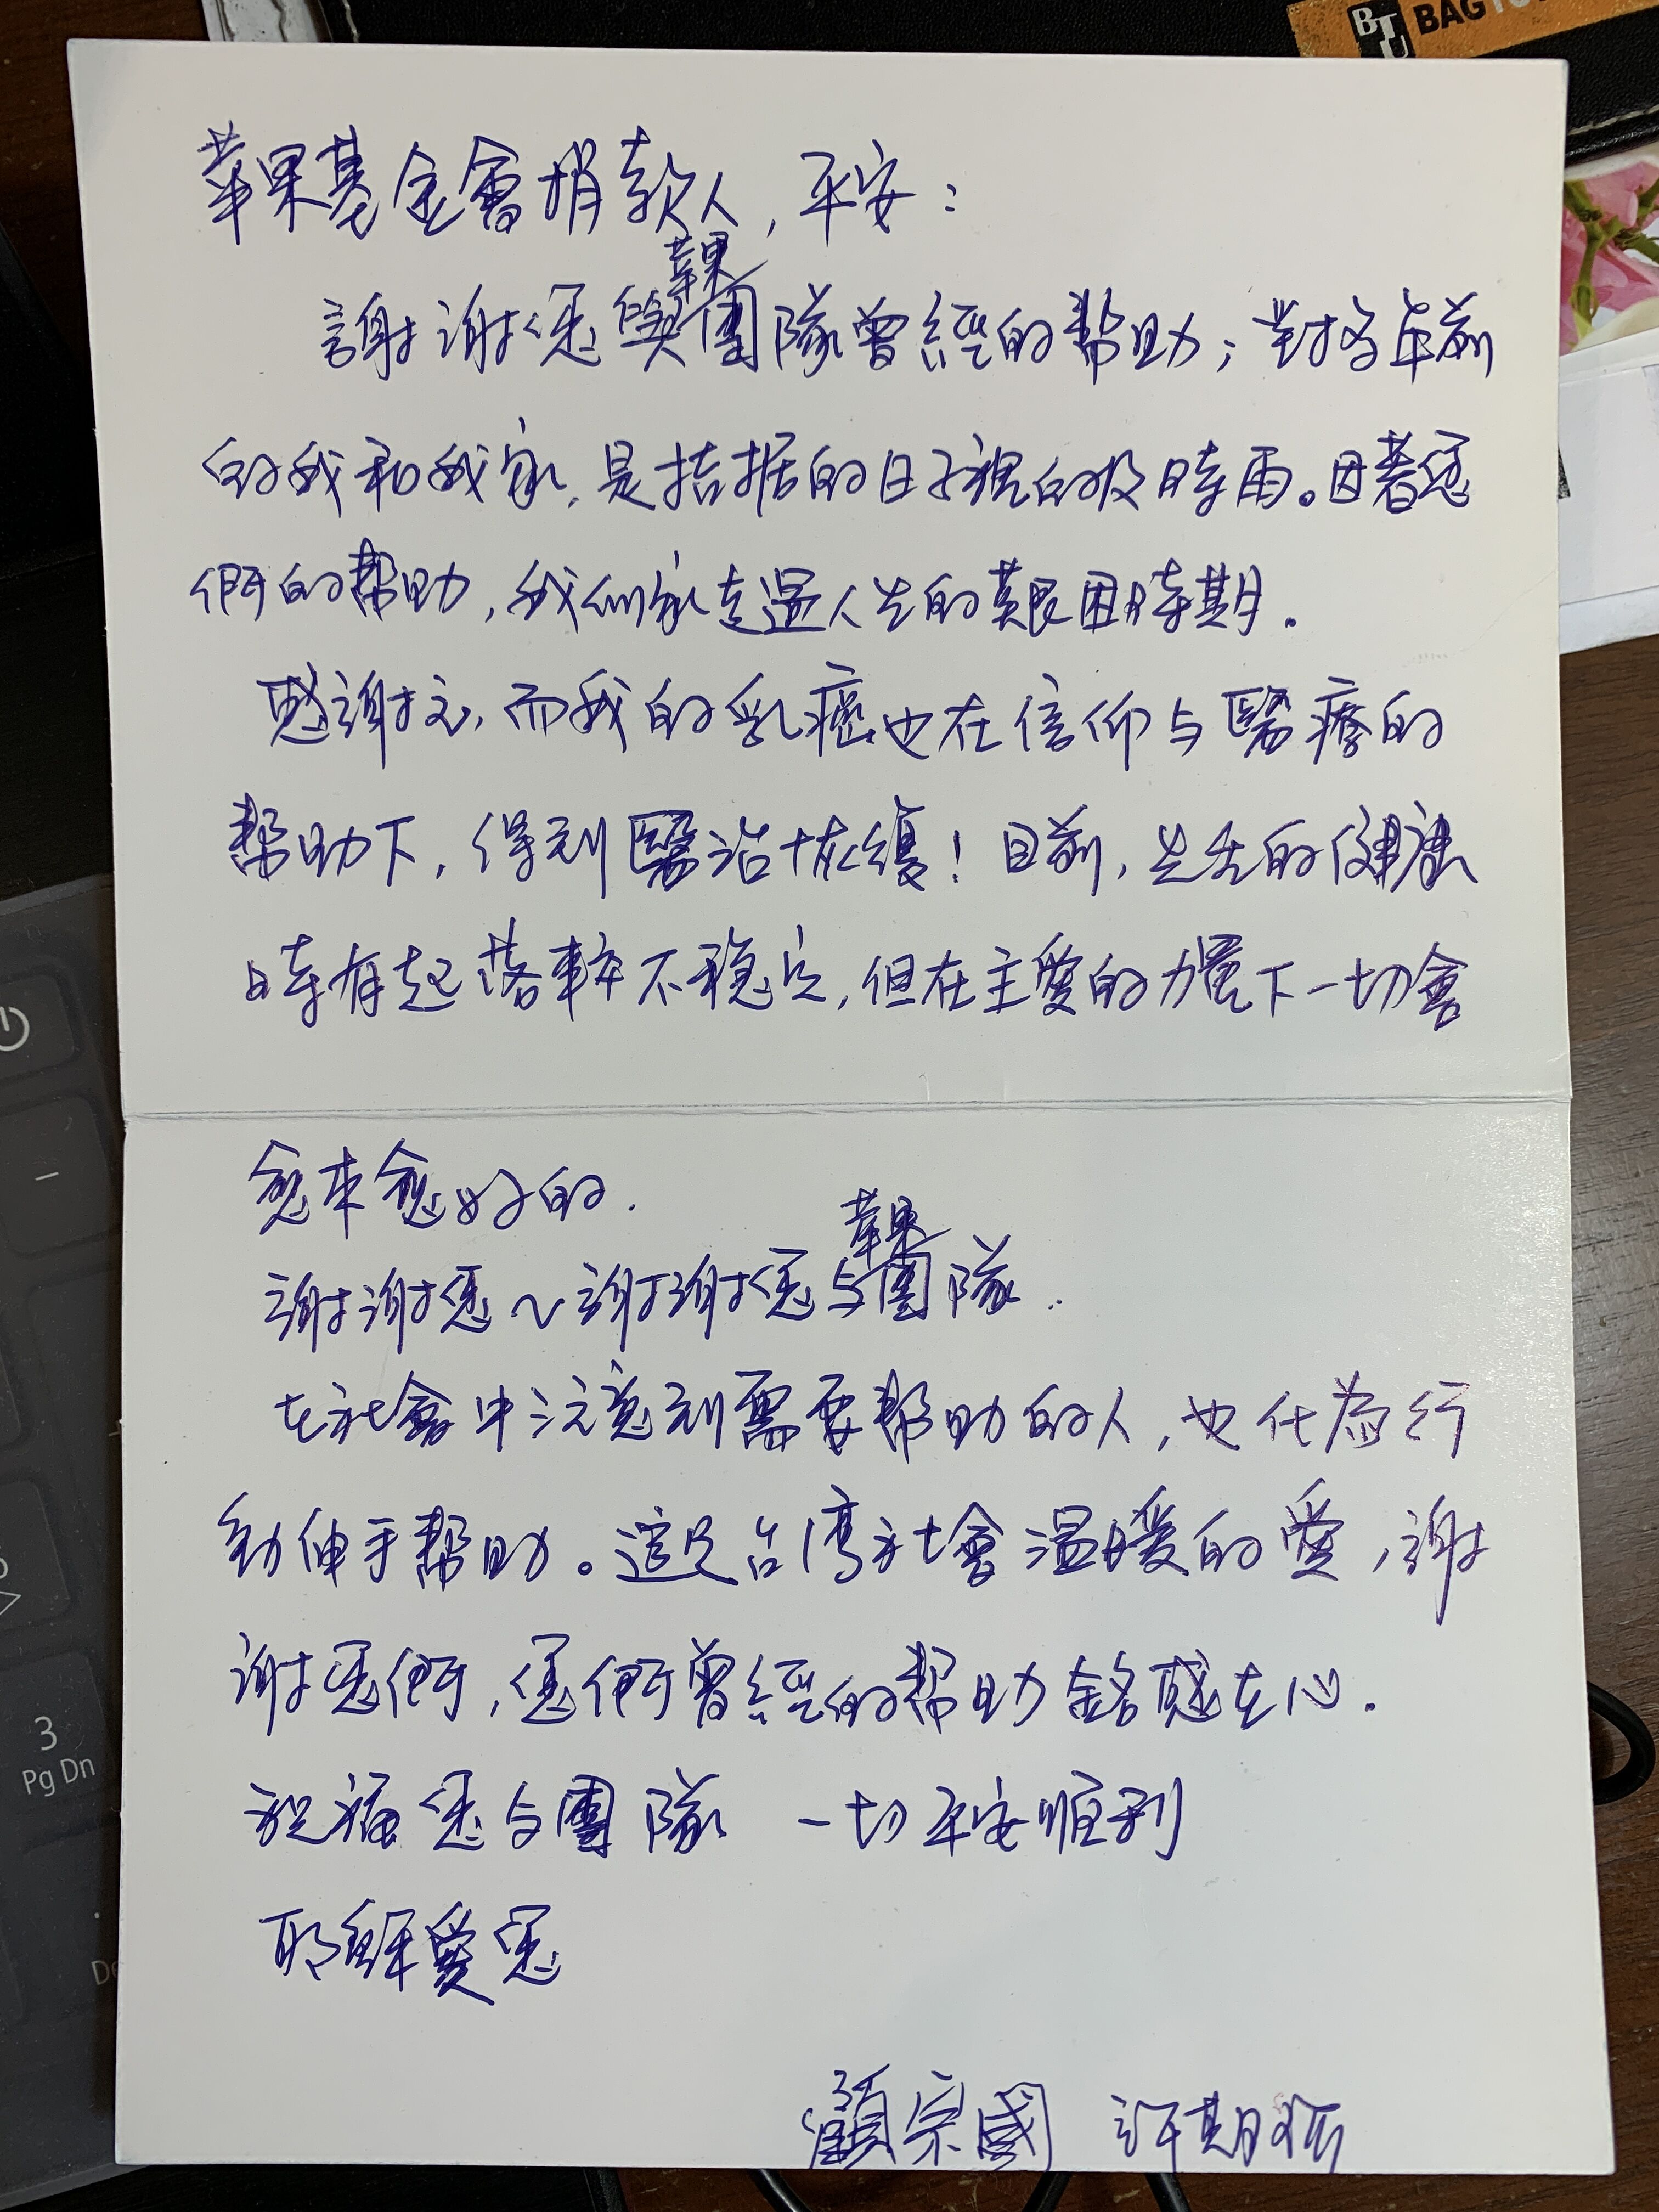 BTU BAGTO
蘋果基金會捐款人,平安:
謝謝您與蘋果團隊曾經的幫助;對多年前
的我和我家,是拮据的日子裡的及時雨。因著您
們的幫助,我們家走過人生的艱困時期.
感謝主,而我的乳癌也在信仰与醫療的
幫助下,得到醫治恢復!目前,先生的健康
時有起落 不穩定,但在主愛的力量下一切會
愈來愈好的.
謝謝您~謝謝您与蘋果團隊.
在社會中注意到需要幫助的人,也化為行
動伸手幫助。這是台灣社會溫暖的愛,謝
謝您們,您們曾經的幫助銘感在心.
祝福您与團隊 一切平安順利
耶穌愛您
顧宗國 許期
3
Pg Dn